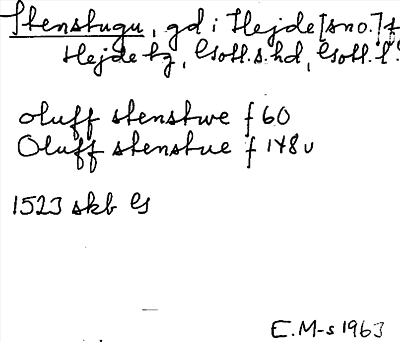 Stenstugu, gd i Hejde [sno.] f
Hejde tg, Gotl.s.hd, Gotl.l.
oluff stenstwe f 60
Oluff stenstue f 148v
1523 skb G
E.M-s 1963